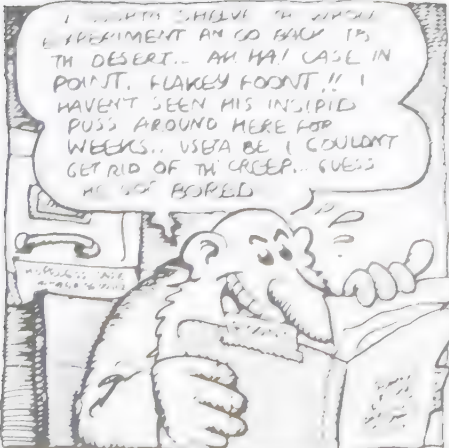 SHELVE TH' WHOLE
EXPERIMENT AN' GO BACK TO
TH' DESERT... AH HA! CASE IN
POINT. FLAKEY FOONT!! I
HAVEN'T SEEN HIS INSIPID
PUSS AROUND HERE FOR
WEEKS.. USETA BE I COULDN'T
GET RID OF TH' CREEP... GUESS
HE GOT BORED